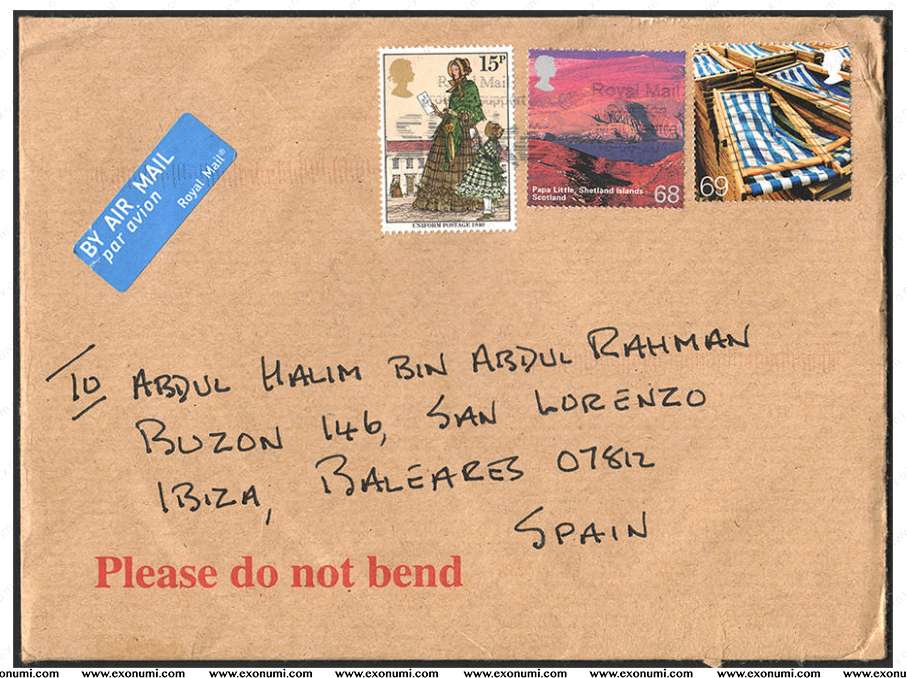 15P
UNIFORM POSTAGE 1840
Royal Mail
Papa Little, Shetland Islands
Scotland
68
69
BY AIR MAIL
par avion
Royal Mail®
TO ABDUL HALIM BIN ABDUL RAHMAN
BUZON 146, SAN LORENZO
IBIZA, BALEARES 07812
SPAIN
Please do not bend
www.exonumi.com www.exonumi.com www.exonumi.com www.exonumi.com www.exonumi.com www.exonumi.com